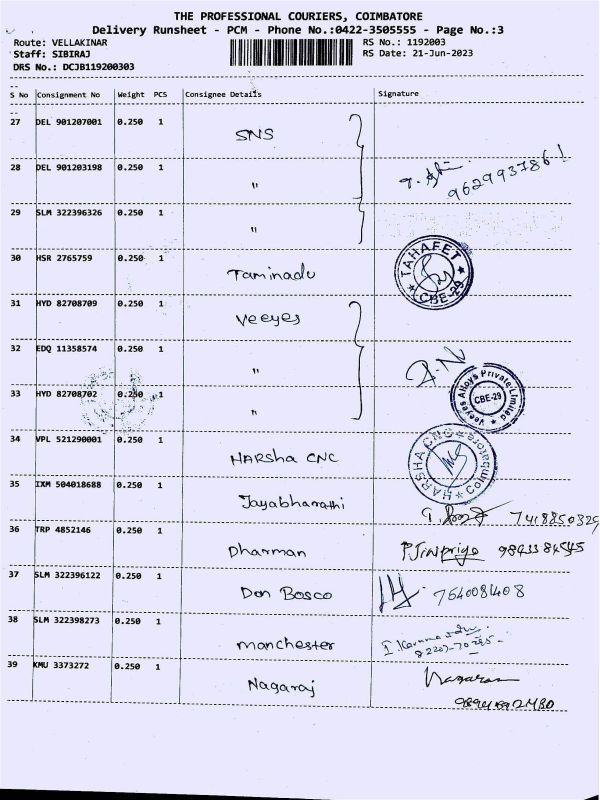 THE PROFESSIONAL COURIERS, COIMBATORE
Delivery Runsheet - PCM - Phone No.:0422-3505555 - Page No.:3
Route: VELLAKINAR RS No.: 1192003
Staff: SIBIRAJ RS Date: 21-Jun-2023
DRS No.: DCJB119200303
S No Consignment No Weight PCS Consignee Details Signature
27 DEL 901207001 0.250 1 SNS
28 DEL 901203198 0.250 1 "
29 SLM 322396326 0.250 1 "
30 HSR 2765759 0.250 1 Taminadu TAHAFET CBE-29
31 HYD 82708709 0.250 1 Veeyes
32 EDQ 11358574 0.250 1 "
33 HYD 82708702 0.250 1 " Veeyes Alloys Private Limited CBE-29
34 VPL 521290001 0.250 1 HARSha CNC HARSHA CNC Coimbatore
35 IXM 504018688 0.250 1 Jayabharathi 7418850329
36 TRP 4852146 0.250 1 Dharman
37 SLM 322396122 0.250 1 Don Bosco 764008408
38 SLM 322398273 0.250 1 manchester
39 KMU 3373272 0.250 1 Nagaraj